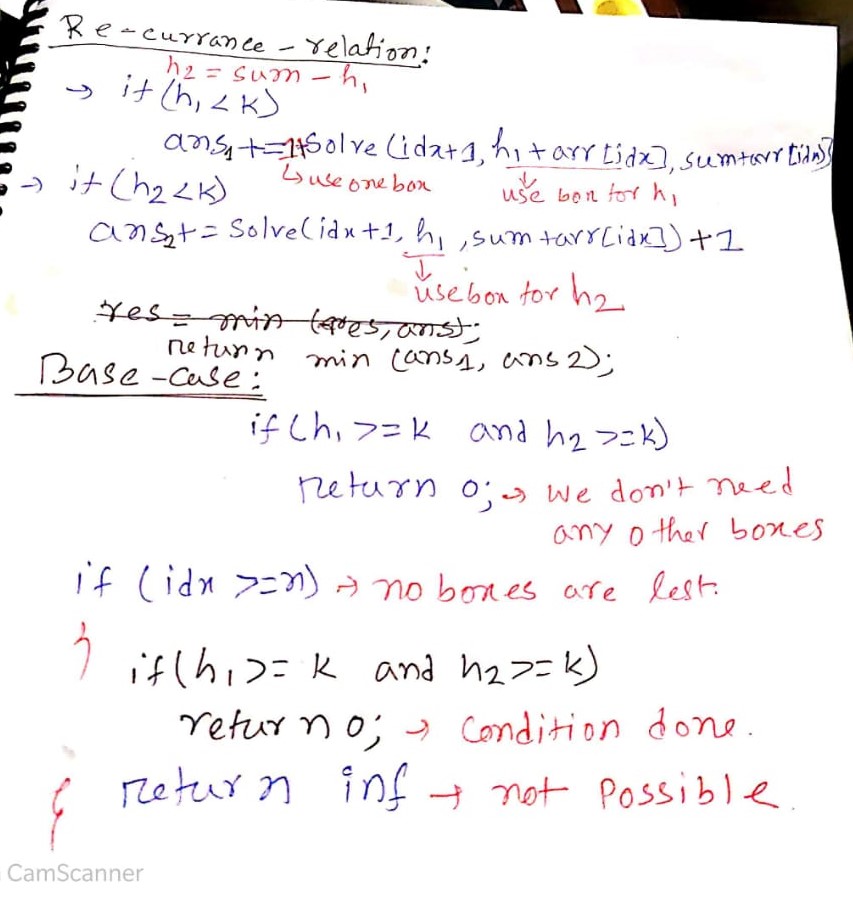 Re-currance-relation:
h2 = sum - h1
→ if (h1 < k)
ans1 += 1+Solve (idx+1, h1 + arr [idx], sum+arr [idx])
↳ use one box use box for h1
→ if (h2 < k)
ans2 += Solve(idx+1, h1, sum +arr[idx]) +1
use box for h2
res = min (res, ans);
return min (ans1, ans2);
Base-Case:
if (h1 >= k and h2 >= k)
return 0; → we don't need
any other boxes
if (idx >= n) → no boxes are left.
{
if(h1 >= k and h2 >= k)
return 0; → Condition done.
} return inf → not Possible.
CamScanner